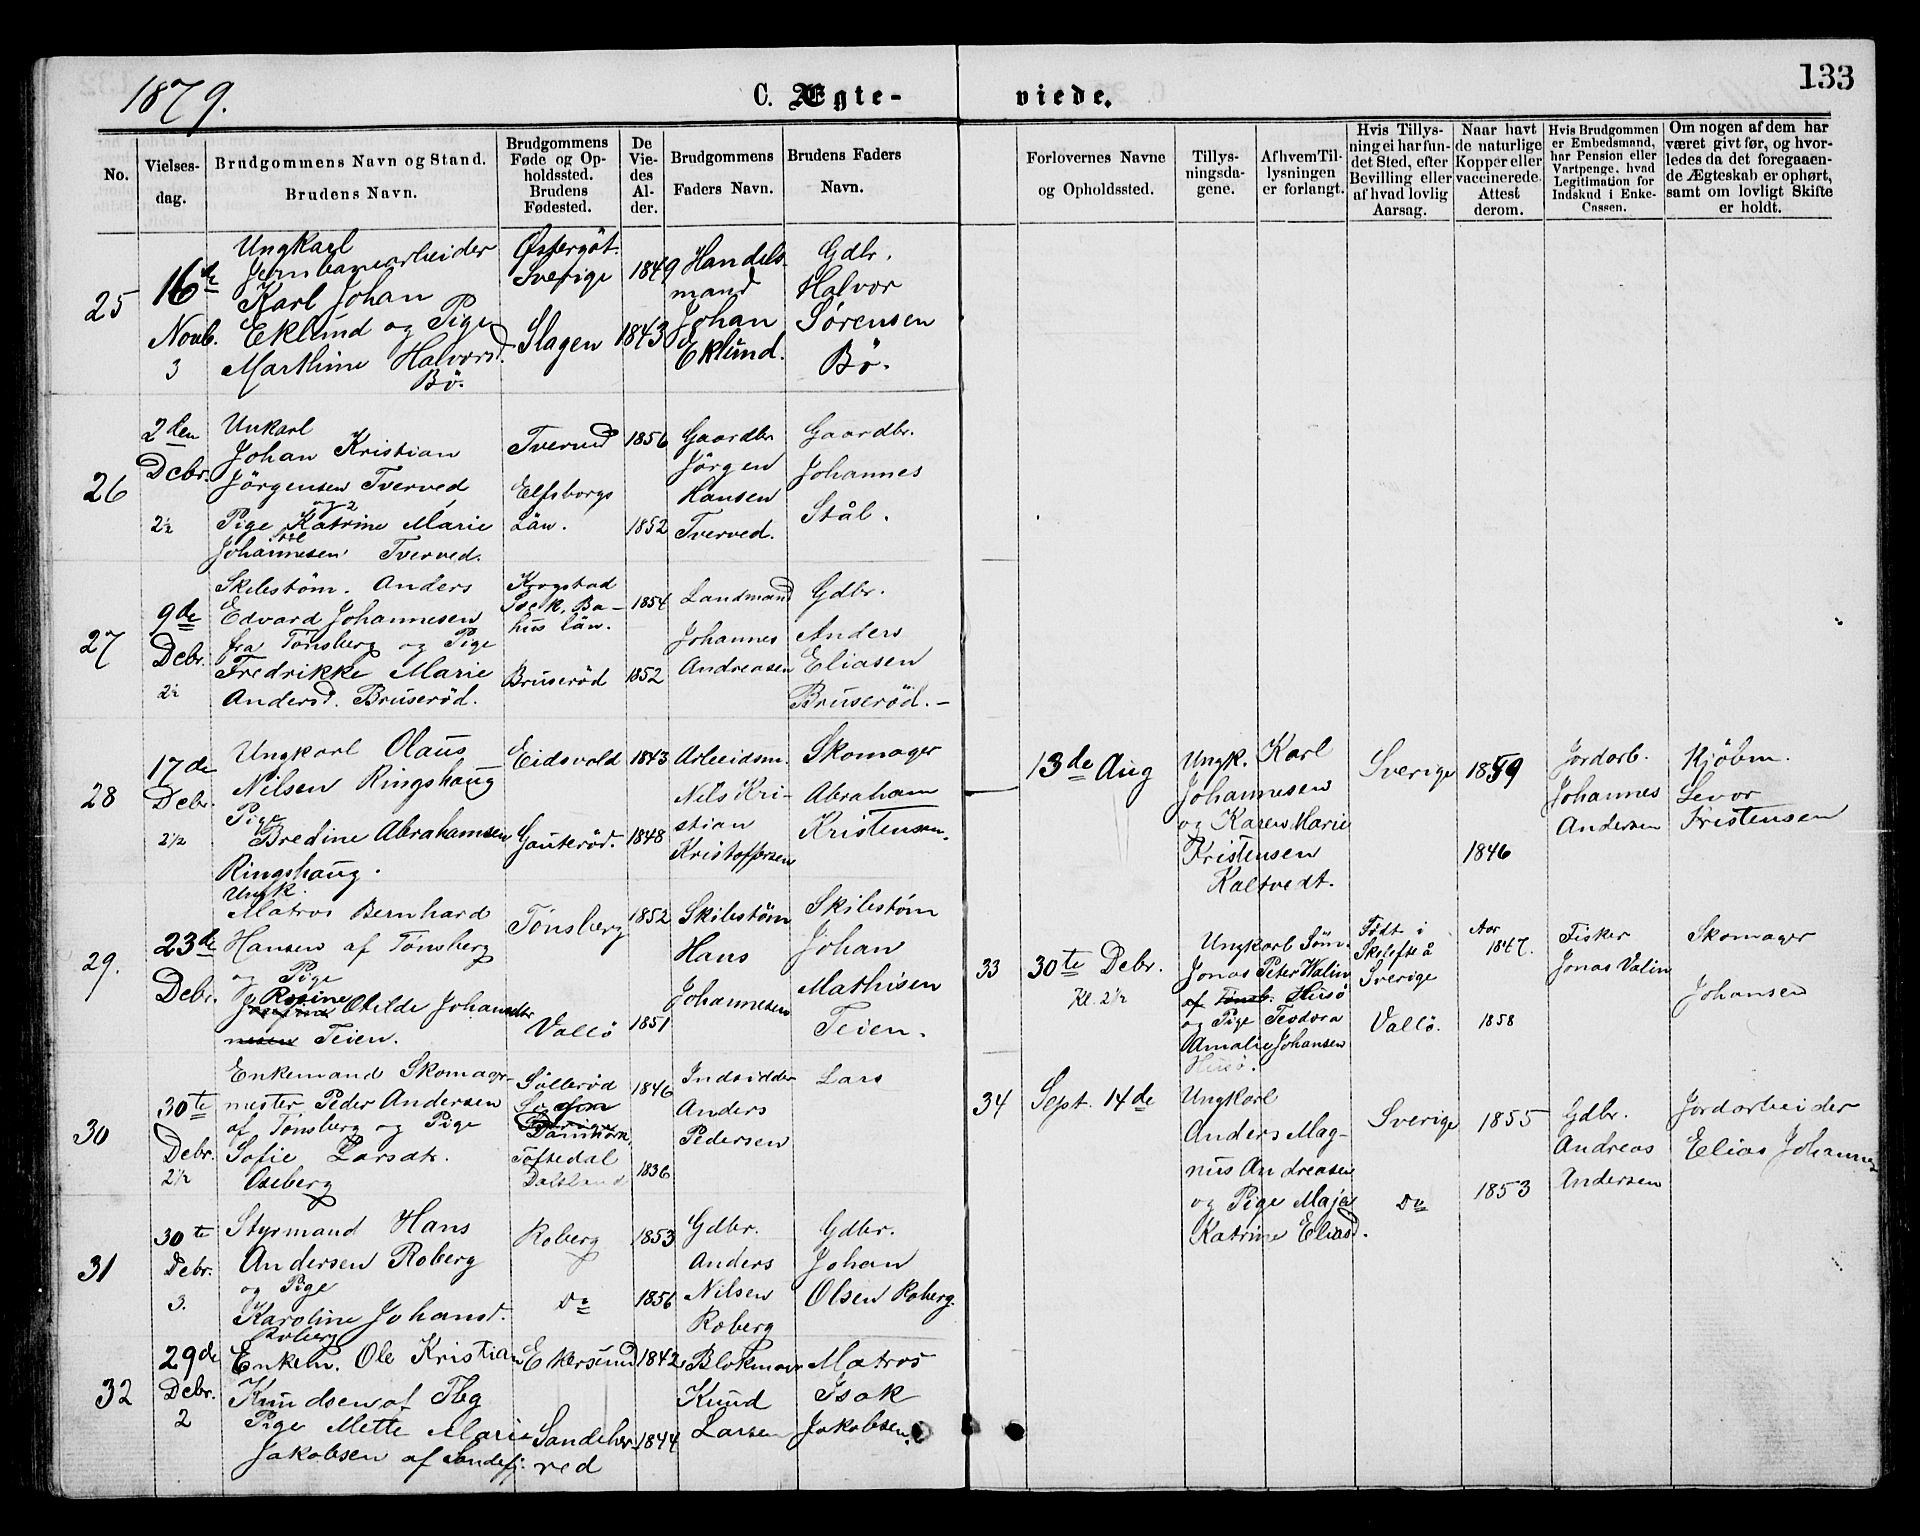 1879.
C. Ægte-
viede.
133
No.
Vielses-
dag.
Brudgommens Navn og Stand.
Brudens Navn.
Brudgommens
Føde og Op-
holdssted.
Brudens
Fødested.
De
Vie-
des
Al-
der.
Brudgommens
Faders Navn.
Brudens Faders
Navn.
Forlovernes Navne
og Opholdssted.
Tillys-
ningsda-
gene.
Af hvem Til-
lysningen
er forlangt.
Hvis Tillys-
ning ei har fun-
det Sted, efter
Bevilling eller
af hvad lovlig
Aarsag.
Naar havt
de naturlige
Kopper eller
vaccinerede.
Attest
derom.
Hvis Brudgommen
er Embedsmand,
har Pension eller
Vartpenge, hvad
Legitimation for
Indskud i Enke-
Cassen.
Om nogen af dem har
været givt før, og hvor-
ledes da det foregaaen-
de Ægteskab er ophørt,
samt om lovligt Skifte
er holdt.
25
16de
Novb.
3
Ungkarl
Jernbanearbeider
Karl Johan
Eklund og Pige
Marthine Halvorsd.
Bö.
Østergöt.
Sverige
Slagen
1849
1843
Handels
mand
Johan
Eklund.
Gdbr.
Halvor
Sørensen
Bö.
26
2den
Debr.
2½
Unkarl
Johan Kristian
Jörgensen Tverved
og
Pige Katrine Marie
Johannesen Tverved.
Tverved
Elfsborgs
Län.
1856
1852
Gaardbr
Jörgen
Hansen
Tverved.
Gaardbr.
Johannes
Stål.
27
9de
Debr.
2½
Skibstöm. Anders
Edvard Johannesen
fra Tönsberg og Pige
Fredrikke Marie
Andersd. Bruseröd.
Krogstad
Ba-
hus län.
Bruseröd
1854
1852
Landmand
Johannes
Andreasen
Gdbr.
Anders
Eliasen
Bruseröd.-
28
17de
Debr.
2½
Ungkarl Olaus
Nilsen Ringshaug
Pige
Bredine Abrahamsen
Ringshaug.
Eidsvold
Gauteröd.
1843
1848
Arbeidsm.
Nils Kri-
stian
Kristoffersen
Skomager
Abraham
Kristensen.
29.
23de
Debr.
Ungk.
Matros Bernhard
Hansen af Tönsberg
og Pige
Rosine Otilde Johannesdtr
Teien.
Tönsberg
Vallö
1852
1851
Skibstöm
Hans
Johannesen
Skibstöm
Johan
Mathisen
Teien.
30
30te
Debr.
2½
Enkemand Skomager-
mester Peder Andersen
af Tönsberg og Pige
Sofie Larsdtr.
Oseberg
Sölleröd
Danmark.
Töftedal
Dalsland
1846
1836
Indsidder
Anders
Pedersen
Lars
31
30te
Debr.
3.
Styrmand Hans
Andersen Roberg
og Pige
Karoline Johansd.
Roberg
Roberg
Do
1853
1856
Gdbr.
Anders
Nilsen
Roberg
Gdbr.
Johan
Olsen Roberg.
32
29de
Debr.
2
Enkem. Ole Kristian
Knudsen af Tbg
Pige Mette Marie
Jakobsen af Sandefj.
Ekersund
Sandeher-
red
1842
1844
Blokmager
Knud
Larsen
Matros
Isak
Jakobsen.
13de Aug
Ungk. Karl
Johannesen
og Karen Marie
Kristensen
Kaltvedt.
Sverige
1859
1846
Jordarb.
Johannes
Andersen
Kjöbm.
Levor
Kristensen
33
30te Debr.
Kl. 2½
Ungkarl Söm.
Jonas Peter Walin
af Tönsb. Husö
og Pige Teodora
Amalie Johansen
Husö.
Født i
Skelefteå
Sverige
Vallö.
Aar
1847.
1858
Fisker
Jonas Valin
Skomager
Johansen
34
Sept. 14de
Ungkarl
Anders Mag-
nus Andreasen
og Pige Maja
Katrine Eliasd.
Sverige
Do
1855
1853
Gdbr.
Andreas
Andersen
Jordarbeider
Elias Johannes